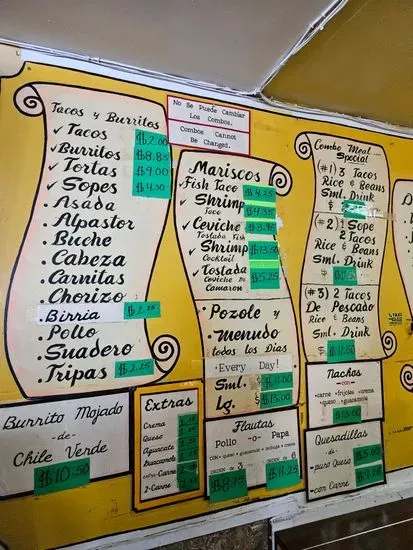 No Se Puede Cambiar
Los Combos.
Combos Cannot
Be Changed.
Tacos y Burritos
✓ Tacos $2.00
✓ Burritos $8.85
✓ Tortas $9.00
✓ Sopes $4.30
• Asada
• Alpastor
• Buche
• Cabeza
• Carnitas
• Chorizo
• Birria $2.25
• Pollo
• Suadero
• Tripas $2.25
Mariscos
Fish Taco $4.25
✓ Shrimp $4.35
Taco
✓ Ceviche $3.95
Tostada Fish
✓ Shrimp $13.50
Cocktail
✓ Tostada $5.25
Ceviche de
Camaron
• Pozole y
• Menudo
todos los Dias
• Every Day!
Sml. $11.00
Lg. $13.00
Combo Meal...
Special
(#1) 3 Tacos
Rice & Beans
Sml. Drink
$
(#2) 1 Sope
2 Tacos
Rice & Beans
Sml. Drink
$
(#3) 2 Tacos
De Pescado
Rice & Beans
Sml. Drink
$11.50
Burrito Mojado
-de-
Chile Verde
$10.50
Extras
Crema
Queso
Aguacate
Guacamole
extra-Carne
2-Carne
Flautas
Pollo -o- Papa
con • queso • guacamole • lechuga • crema
orden de 3 orden de 6
$8.75 $11.25
Nachos
-con-
•carne •frijoles •crema
•queso •guacamole
$13.50
Quesadillas
-de-
- puro Queso
- con Carne